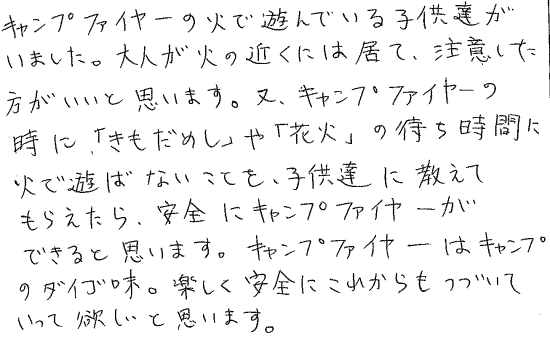 キャンプファイヤーの火で遊んでいる子供達が
いました。大人が火の近くには居て、注意した
方がいいと思います。又、キャンプファイヤーの
時に、「きもだめし」や「花火」の待ち時間に
火で遊ばないことを、子供達に教えて
もらえたら、安全にキャンプファイヤーが
できると思います。キャンプファイヤーはキャンプ
のダイゴ味。楽しく安全にこれからもつづいて
いって欲しいと思います。